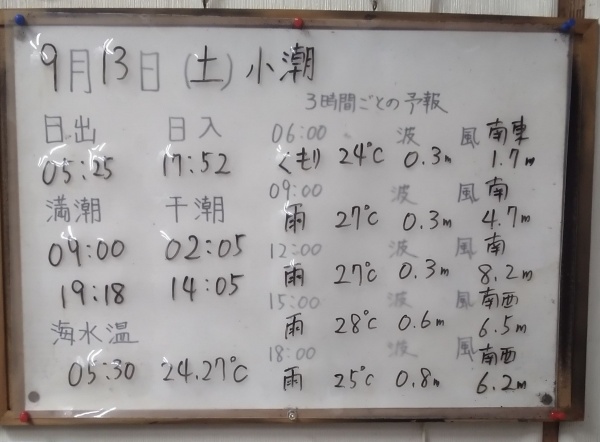 9月13日(土)小潮
日出 日入
05:25 17:52
満潮 干潮
09:00 02:05
19:18 14:05
海水温
05:30 24.27℃
3時間ごとの予報
06:00 波 風 南東
くもり 24℃ 0.3m 1.7m
09:00 波 風 南
雨 27℃ 0.3m 4.7m
12:00 波 風 南
雨 27℃ 0.3m 8.2m
15:00 波 風 南西
雨 28℃ 0.6m 6.5m
18:00 波 風 南西
雨 25℃ 0.8m 6.2m